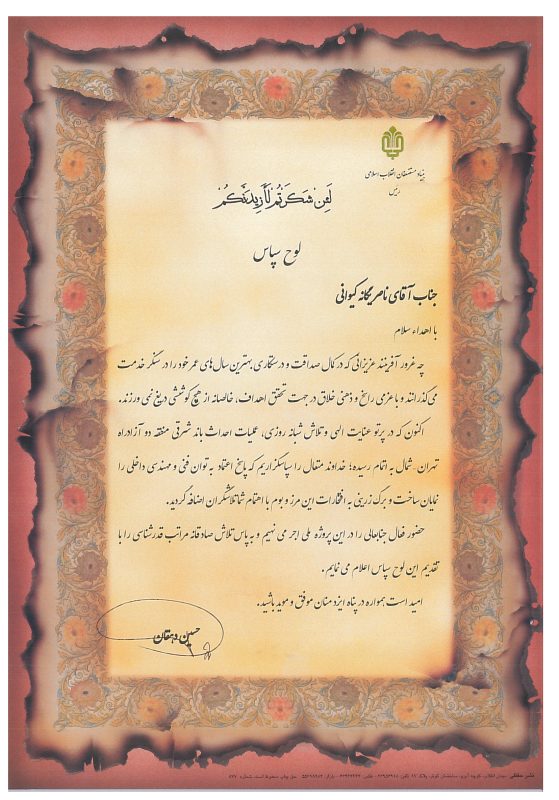 بنیاد مستضعفان انقلاب اسلامی
رییس
لَئِن شَكَرْتُمْ لَأَزِيدَنَّكُمْ
لوح سپاس
جناب آقای ناصر یگانه کیوانی
با اهداء سلام
چه غرور آفرینند عزیزانی که در کمال صداقت و درستکاری بهترین سال‌های عمر خود را در سنگر خدمت
می‌گذرانند و با عزمی راسخ و ذهنی خلاق در جهت تحقق اهداف، خالصانه از هیچ کوششی دریغ نمی ورزند.
اکنون که در پرتو عنایت الهی و تلاش شبانه روزی، عملیات احداث باند شرقی منطقه دو آزادراه
تهران-شمال به اتمام رسیده؛ خداوند متعال را سپاسگزاریم که پاسخ اعتماد به توان فنی و مهندسی داخلی را
نمایان ساخت و برگ زرینی به افتخارات این مرز و بوم با اهتمام شما تلاشگران اضافه گردید.
حضور فعال جنابعالی را در این پروژه ملی اجر می نهیم و به پاس تلاش صادقانه مراتب قدرشناسی را با
تقدیم این لوح سپاس اعلام می نمایم.
امید است همواره در پناه ایزد منان موفق و موید باشید.
حسین دهقان